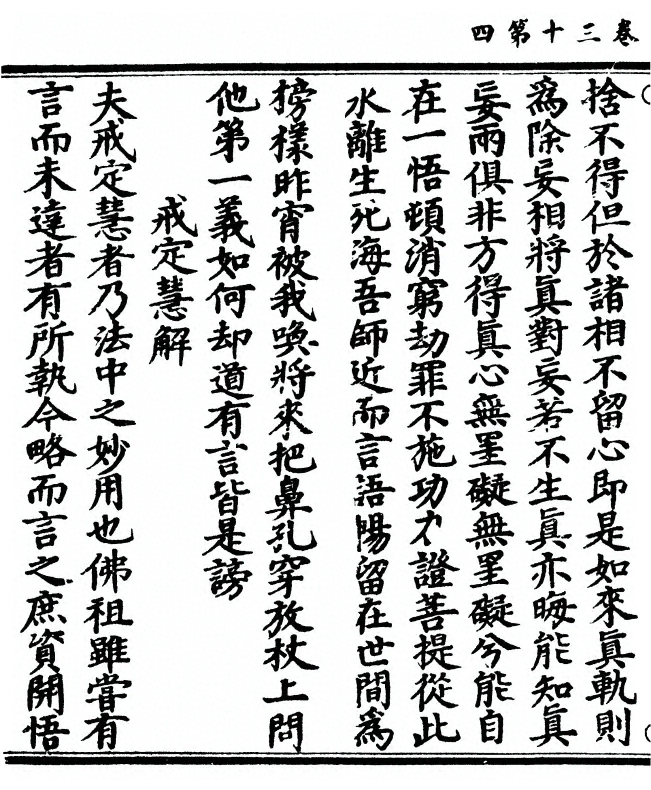 卷三十第四
捨不得但於諸相不留心即是如來眞軌則
爲除妄相將眞對妄若不生眞亦晦能知眞
妄兩俱非方得眞心無罣礙無罣礙兮能自
在一悟頓消窮劫罪不施功力證菩提從此
水離生死海吾師近而言語暢留在世間爲
榜樣昨宵被我喚將來把鼻孔穿放杖上問
他第一義如何却道有言皆是謗
戒定慧解
夫戒定慧者乃法中之妙用也佛祖雖嘗有
言而未達者有所執今略而言之庶資開悟